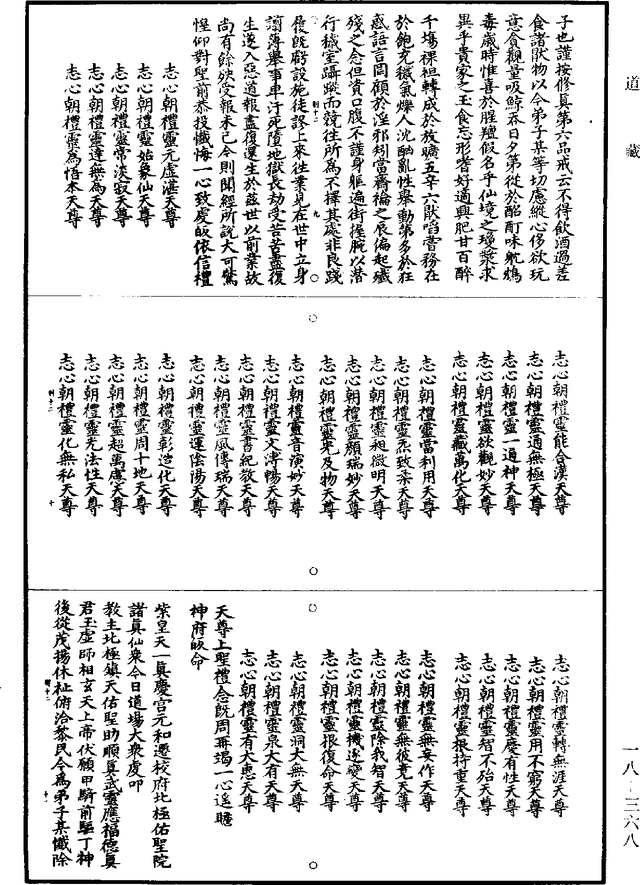 道藏
子也謹按修真第六品戒云不得飲酒過差
食諸肰物以今弟子某等切慮縱心侈欲玩
意貪觀量吸鯨吞日夕第從於酩酊味
毒歲時惟喜於腥羶假名乎仙境之瓊漿求
異乎貴家之玉食忘形嗜好適興肥甘百醉
千塲裸袒轉成於放曠五辛六肰啗當務在
於飽充穢氣爍人沈酗亂性舉動第多於狂
惑語言罔顧於淫邪矧當齋禱之辰偏起殘
殘之念但資口腹不護身軀遍街握腕以潛
行穢室躡蹤而競往所為不擇其處非良踐
履既虧設施徒謬上來徃業見在世中立身
謫薄舉事車汙死墮地獄長劫受苦苦盡復
生遂入惡道報盡復還生於茲世以前業故
尚有餘殃受報未已今則聞經所說大可驚
惶仰對聖前恭投懺悔一心致處皈依信禮
志心朝禮靈元虛湛天尊
志心朝禮靈始象仙天尊
志心朝禮靈常淡寂天尊
志心朝禮靈達無為天尊
志心朝禮靈為悟本天尊
志心朝禮靈能合漠天尊
志心朝禮靈通無極天尊
志心朝禮靈一通神天尊
志心朝禮靈欲觀妙天尊
志心朝禮靈藏萬化天尊
志心朝禮靈當利用天尊
志心朝禮靈炁致柔天尊
志心朝禮靈昶微明天尊
志心朝禮靈顏瑞妙天尊
志心朝禮靈光及物天尊
志心朝禮靈音演妙天尊
志心朝禮靈文溥暢天尊
志心朝禮靈書紀教天尊
志心朝禮靈風傳瑞天尊
志心朝禮靈運陰陽天尊
志心朝禮靈彰造化天尊
志心朝禮靈周十地天尊
志心朝禮靈超萬慮天尊
志心朝禮靈光法性天尊
志心朝禮靈化無私天尊
志心朝禮靈轉無涯天尊
志心朝禮靈用不窮天尊
志心朝禮靈麼有性天尊
志心朝禮靈智不殆天尊
志心朝禮靈根持重天尊
志心朝禮靈無妄作天尊
志心朝禮靈無彼竟天尊
志心朝禮靈除我智天尊
志心朝禮靈機遂變天尊
志心朝禮靈根復命天尊
志心朝禮靈洞大無天尊
志心朝禮靈泉大有天尊
志心朝禮靈有大惠天尊
天尊上聖禮念既周再竭一心遙瞻
神府皈命
紫皇天一真慶宮元和遷校府北極佑聖院
諸真仙衆今日道場大衆處叩
教主北極鎮天佑聖助順真武靈應福德真
君玉虛師相玄天上帝伏願甲騎前驅丁神
後從茂揚休祉俯洽黎民今為弟子某懺除
一八-三六八